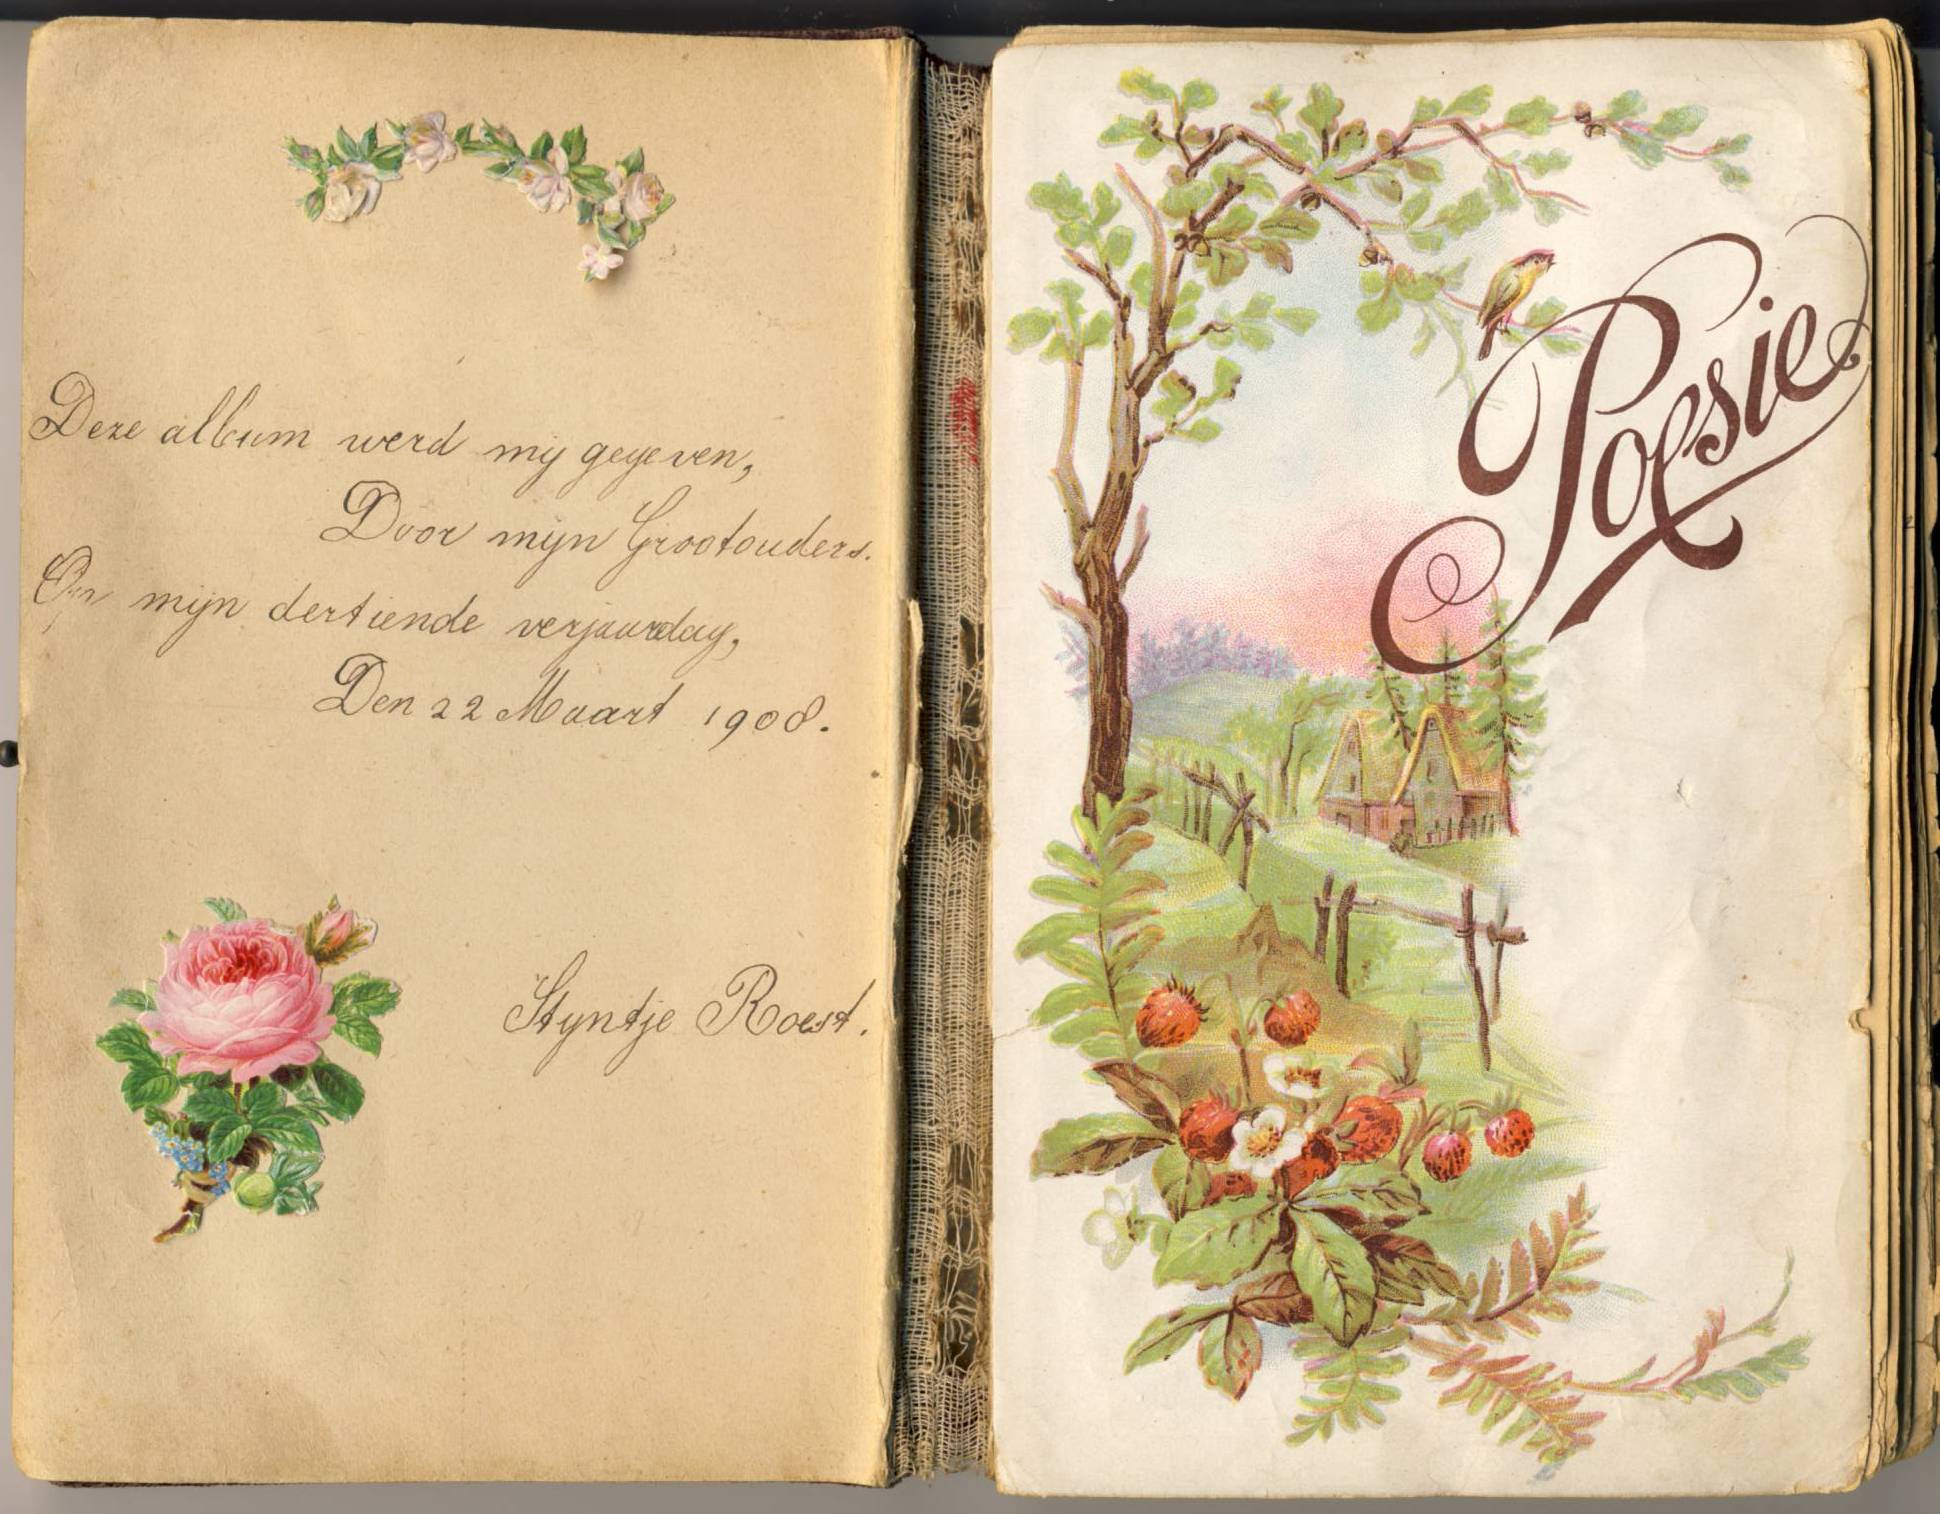 Deze album werd mij gegeven,
Door mijn Grootouders.
Op mijn dertiende verjaardag,
Den 22 Maart 1908.
Styntje Roest.
Poesie